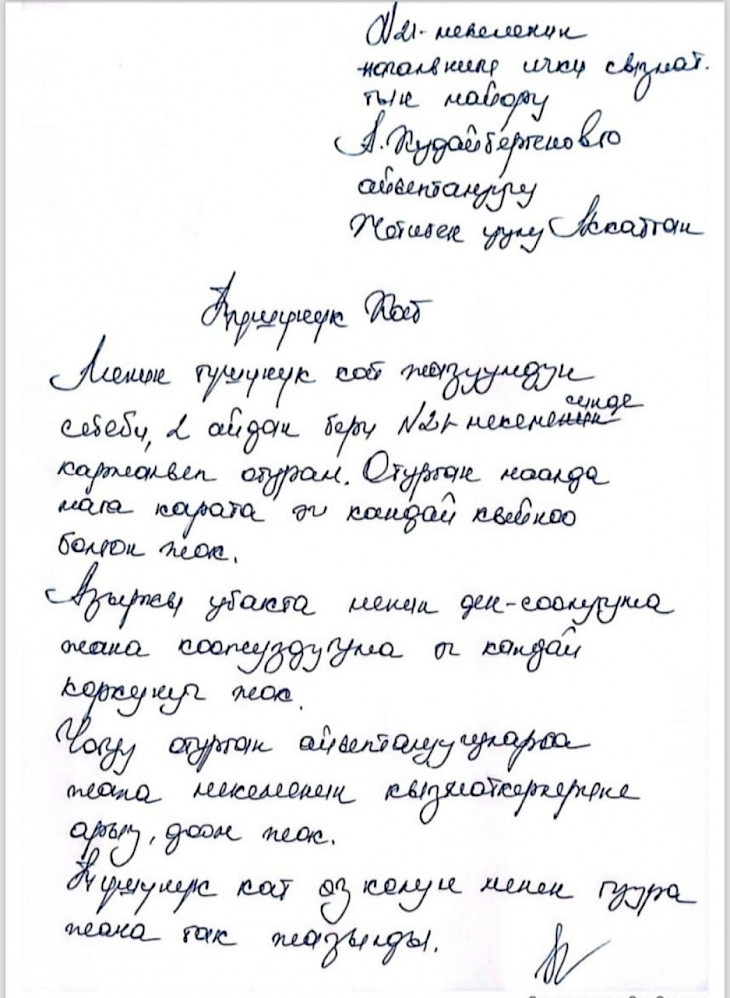 N21-мекеменин
начальниги ички кызмат.
тын майору
А. Кудайбергеновго
айыпталуучу
Жотибек уулу Аккаттан
Түшүнүк Кат
Менин түшүнүк кат жазуумдун
себеби, 2 айдан бери N21-мекеменин сунде
кармалып отурам. Отурган маалда
мага карата эч кандай кыйноо
болгон жок.
Азыркы убакта менин ден-соолугума
жана коопсуздугума эч кандай
коркунуч жок.
Чогуу отурган айыпталуучуларга
жана мекеменин кызматкерлерине
арыз, доом жок.
Түшүнүк кат өз колум менен туура
жана так жазылды.